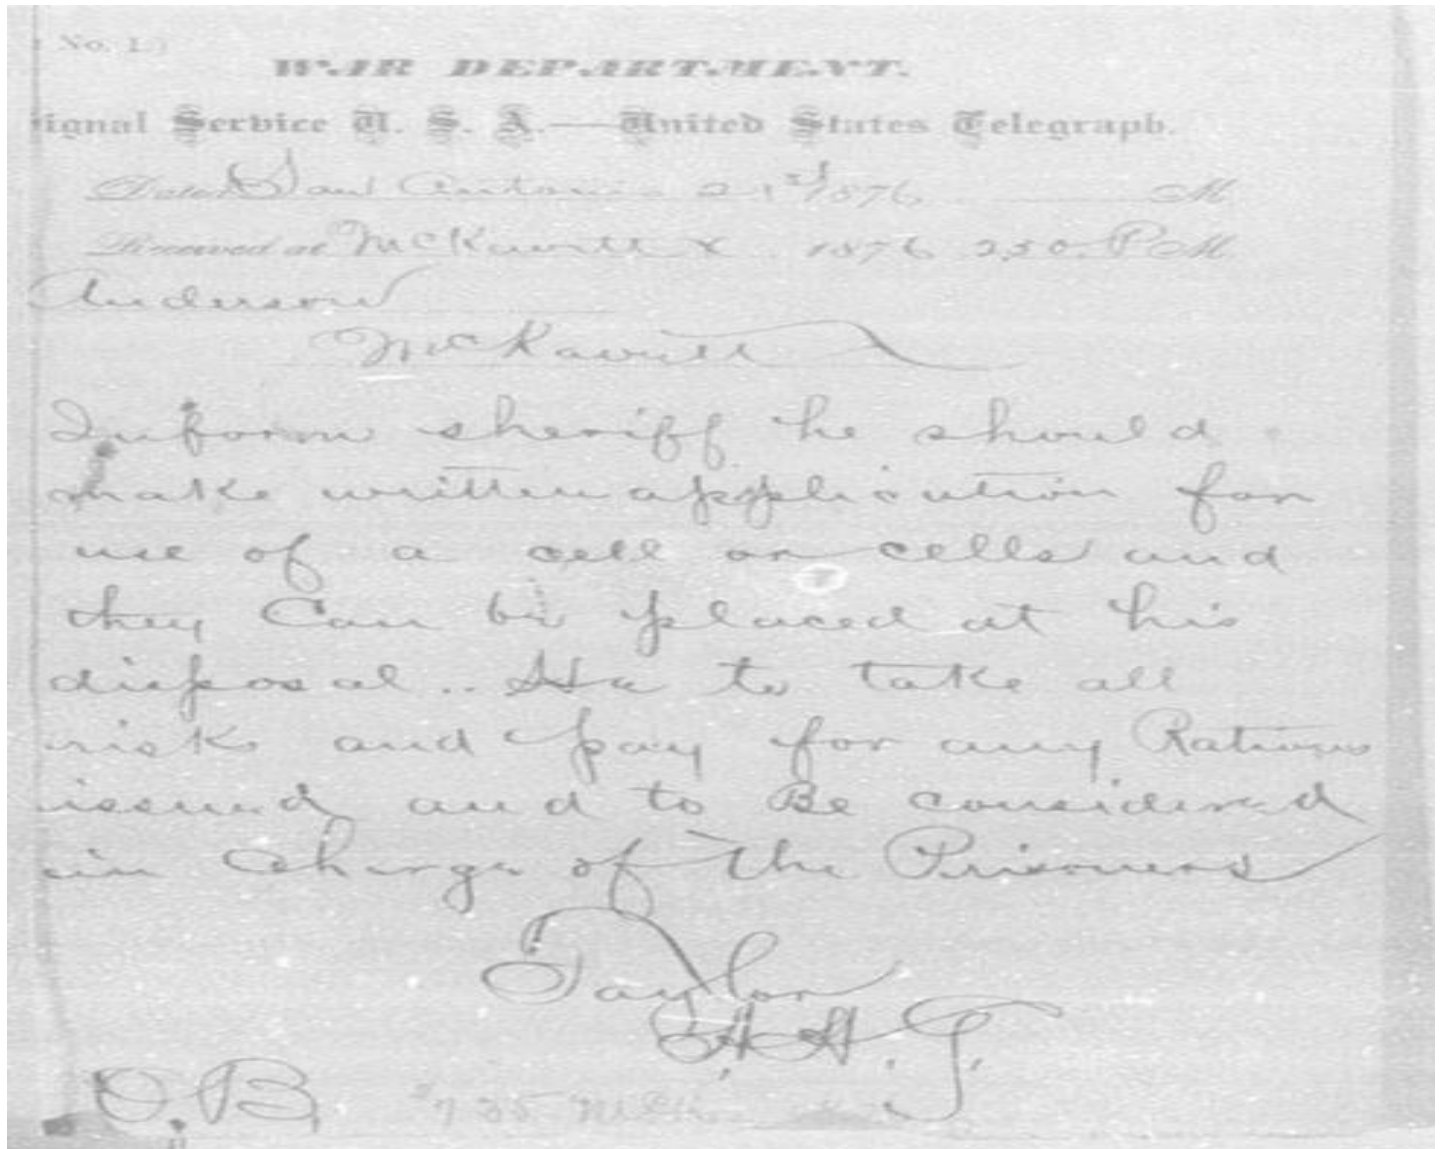 No. 1.)
WAR DEPARTMENT.
ignal Service U. S. A.—United States Telegraph.
Dated San Antonio 21st 1876 M
Received at McKavett X 1876 2,30 P M
Anderson
McKavett
Inform sheriff he should
make written application for
use of a cell or cells and
they Can be placed at his
disposal.. He to take all
risk and pay for any Rations
issued and to Be considered
in Charge of the Prisoners
Taylor
A. A. G.
O. B. 735